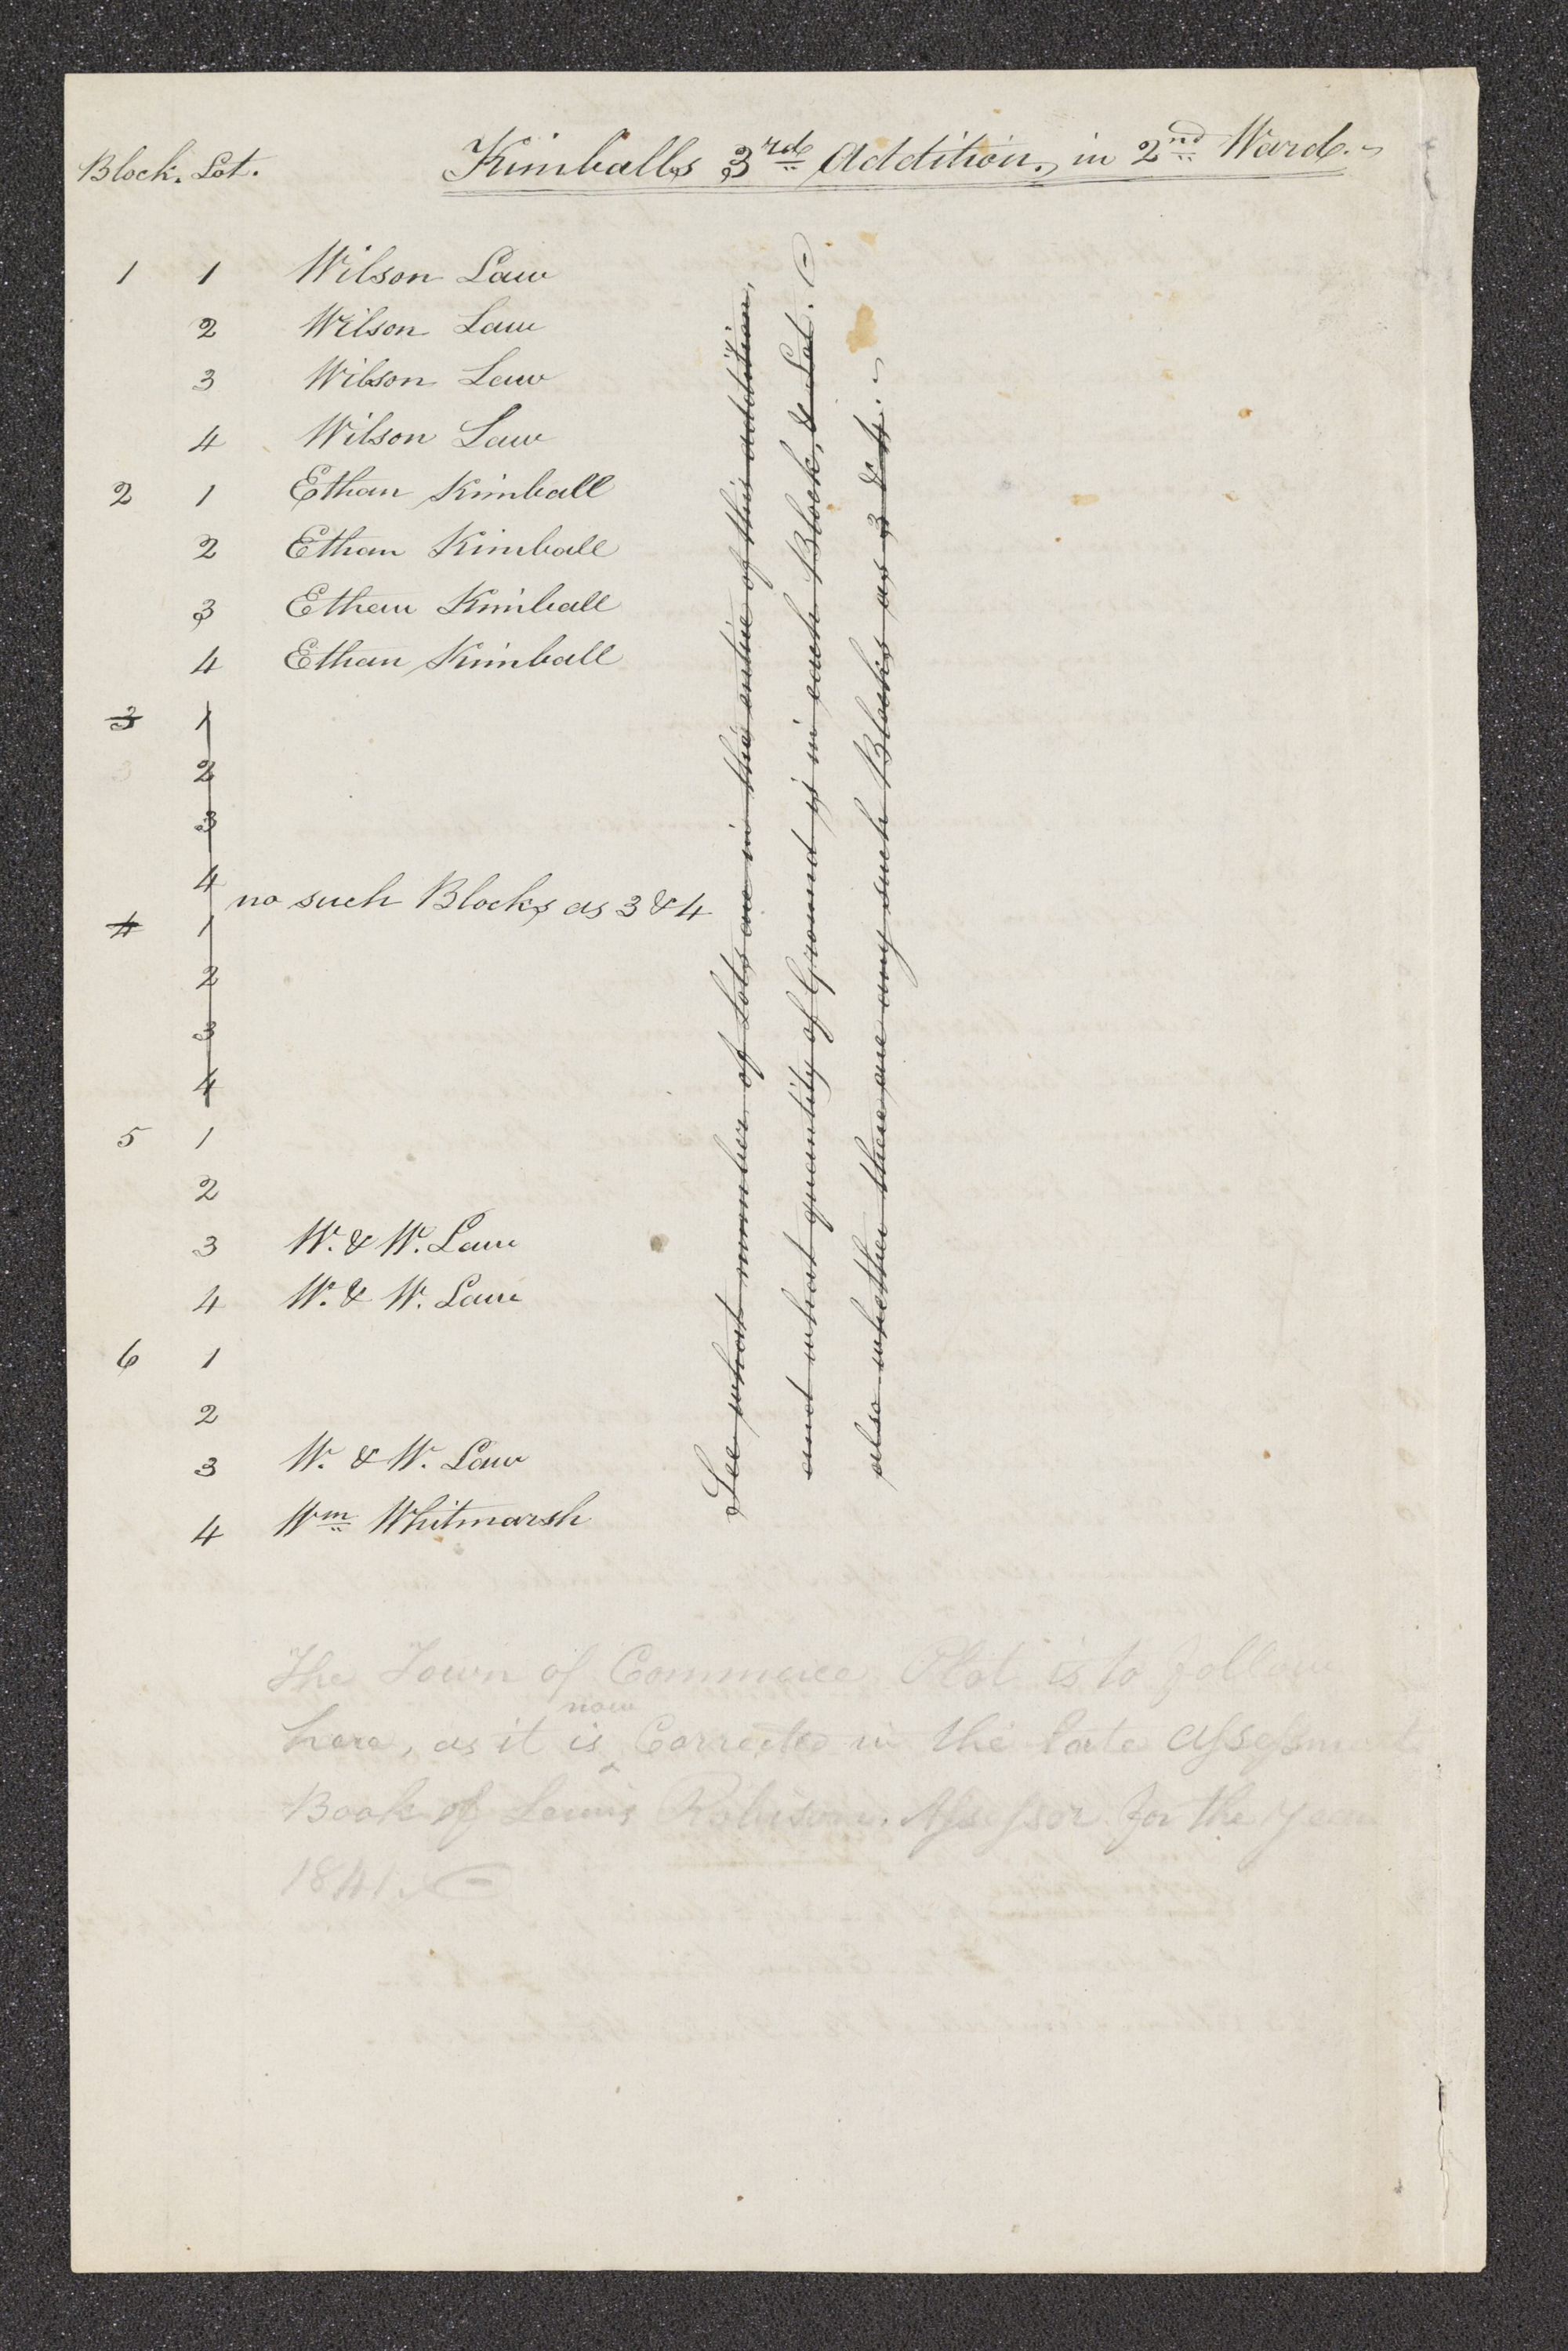 Block. Lot. Kimballs 3rd Addition, in 2nd Ward.
1 1 Wilson Law
2 Wilson Law
3 Wilson Law
4 Wilson Law
2 1 Ethan Kimball
2 Ethan Kimball
3 Ethan Kimball
4 Ethan Kimball
3 1
3 2
3
4
no such Blocks as 3 & 4
4 1
2
3
4
5 1
2
3 W. & W. Law
4 W. & W. Law
6 1
2
3 W. & W. Law
4 Wm Whitmarsh
See what number of Lots are in the entire of this addition,
and what quantity of Ground is in each Block, & Lot.
also whether there are any such Blocks as 3 & 4.
The Town of Commerce Plot is to follow
here, as it is now Corrected in the late assessment
Book of Lewis Robison. Assessor for the year
1841.